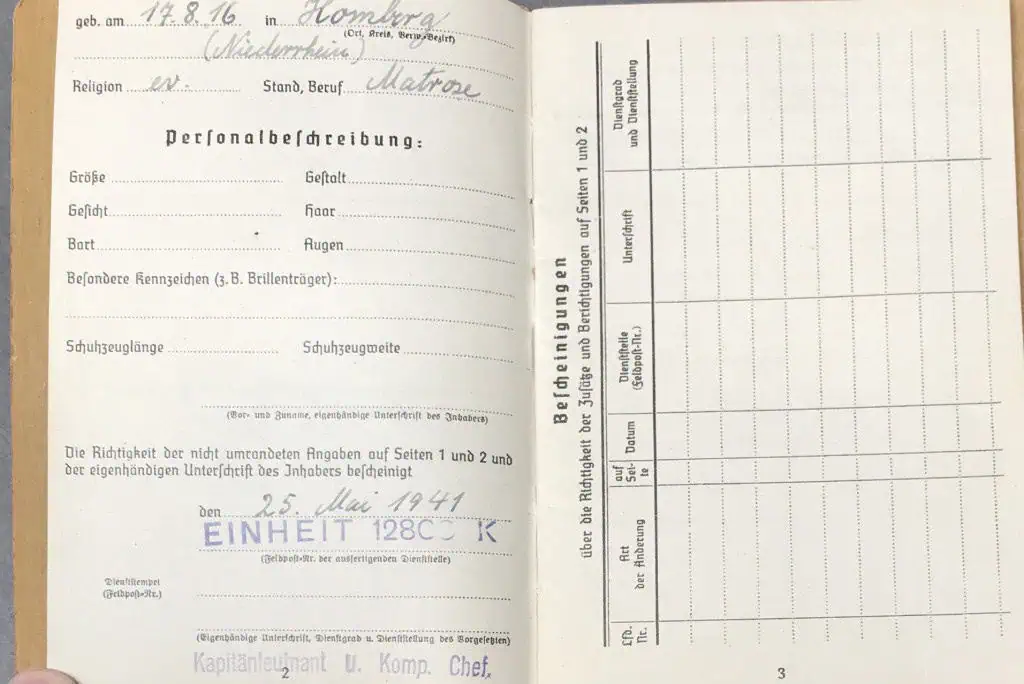 geb. am 17.8.16 in Homberg
(Ort, Kreis, Verw.-Bezirk)
(Niederrhein)
Religion ev. Stand, Beruf Matrose
Personalbeschreibung:
Größe Gestalt
Gesicht Haar
Bart Augen
Besondere Kennzeichen (z. B. Brillenträger):
Schuhzeuglänge Schuhzeugweite
(Vor- und Zuname, eigenhändige Unterschrift des Inhabers)
Die Richtigkeit der nicht umrandeten Angaben auf Seiten 1 und 2 und
der eigenhändigen Unterschrift des Inhabers bescheinigt
den 25. Mai 1941
EINHEIT K
(Feldpost-Nr. der ausfertigenden Dienststelle)
Dienststempel
(Feldpost-Nr.)
(Eigenhändige Unterschrift, Dienstgrad u. Dienststellung des Vorgesetzten)
Kapitänleutnant u. Komp. Chef.
2
Bescheinigungen
über die Richtigkeit der Zusätze und Berichtigungen auf Seiten 1 und 2
Lfd.
Nr.
Art
der Änderung
auf
Sei-
te
Datum
Dienststelle
(Feldpost-Nr.)
Unterschrift
Dienstgrad
und Dienststellung
3